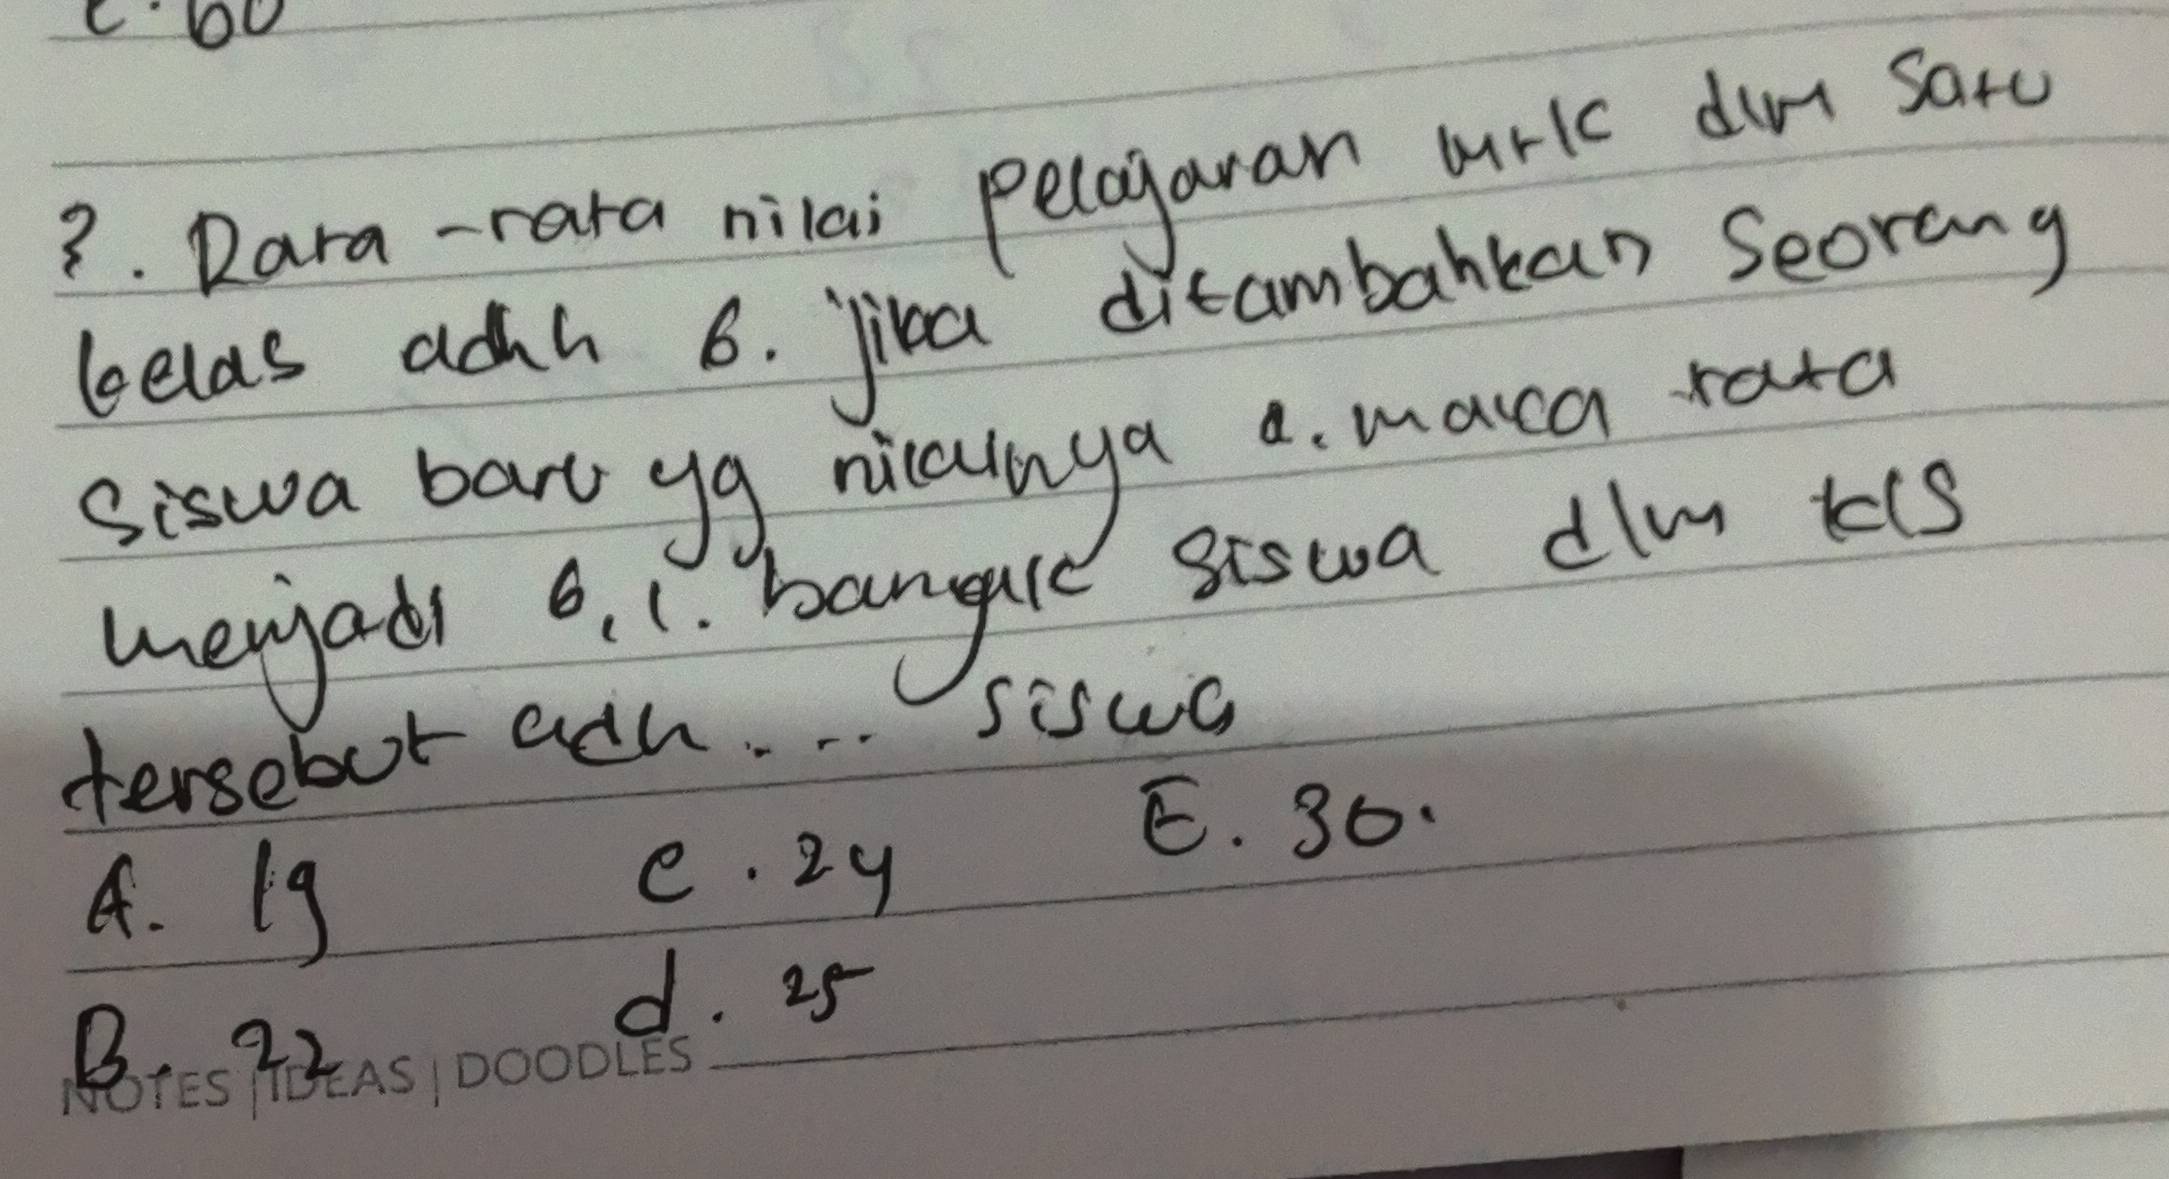 60
3. Rata-rata nilai pelajaran mtk dlm satu
kelas adlh 6. jika ditambahkan seorang
siswa baru yg nilainya . maka rata
menjadi 6,1. banyak siswa dlm kls
tersebut adh .... siswa
A. 19 c. 24 E. 30.
B. 22 d. 25
NOTES | IDEAS | DOODLES